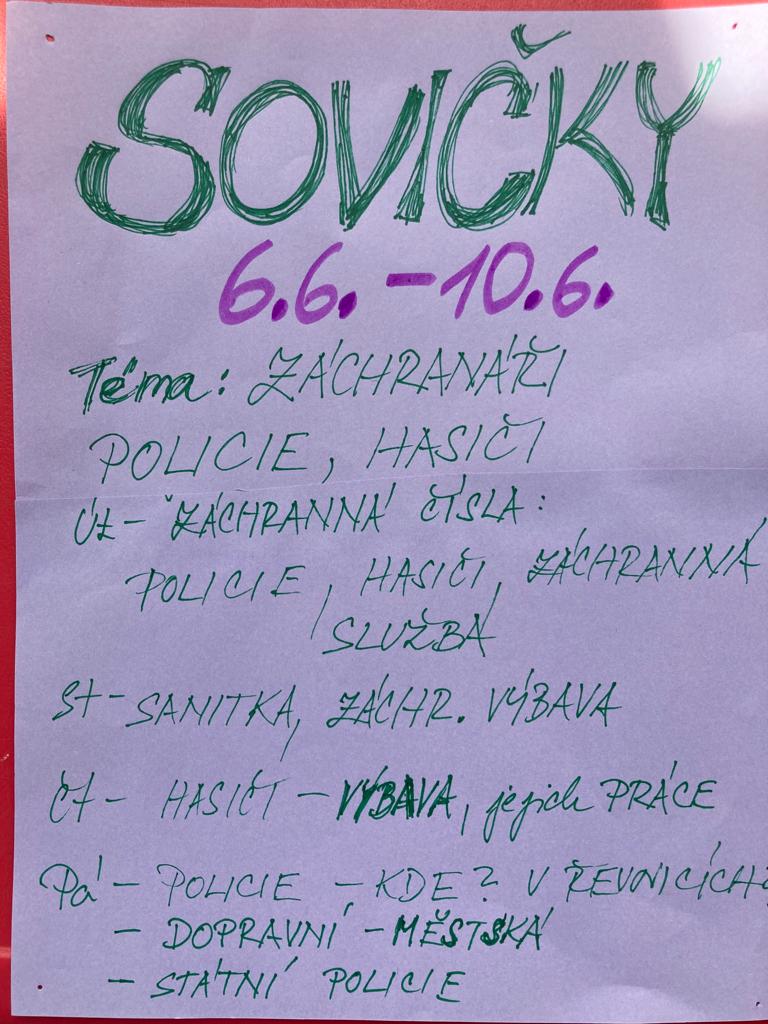 SOVIČKY
6.6. - 10.6.
Téma: ZÁCHRANÁŘI
POLICIE, HASIČI
Út - ZÁCHRANNÁ ČÍSLA:
POLICIE, HASIČI, ZÁCHRANNÁ
SLUŽBA
St - SANITKA, ZÁCHR. VÝBAVA
Čt - HASIČI - VÝBAVA, jejich PRÁCE
Pá - POLICIE - KDE? V ŘEVNICÍCH?
- DOPRAVNÍ - MĚSTSKÁ
- STÁTNÍ POLICIE